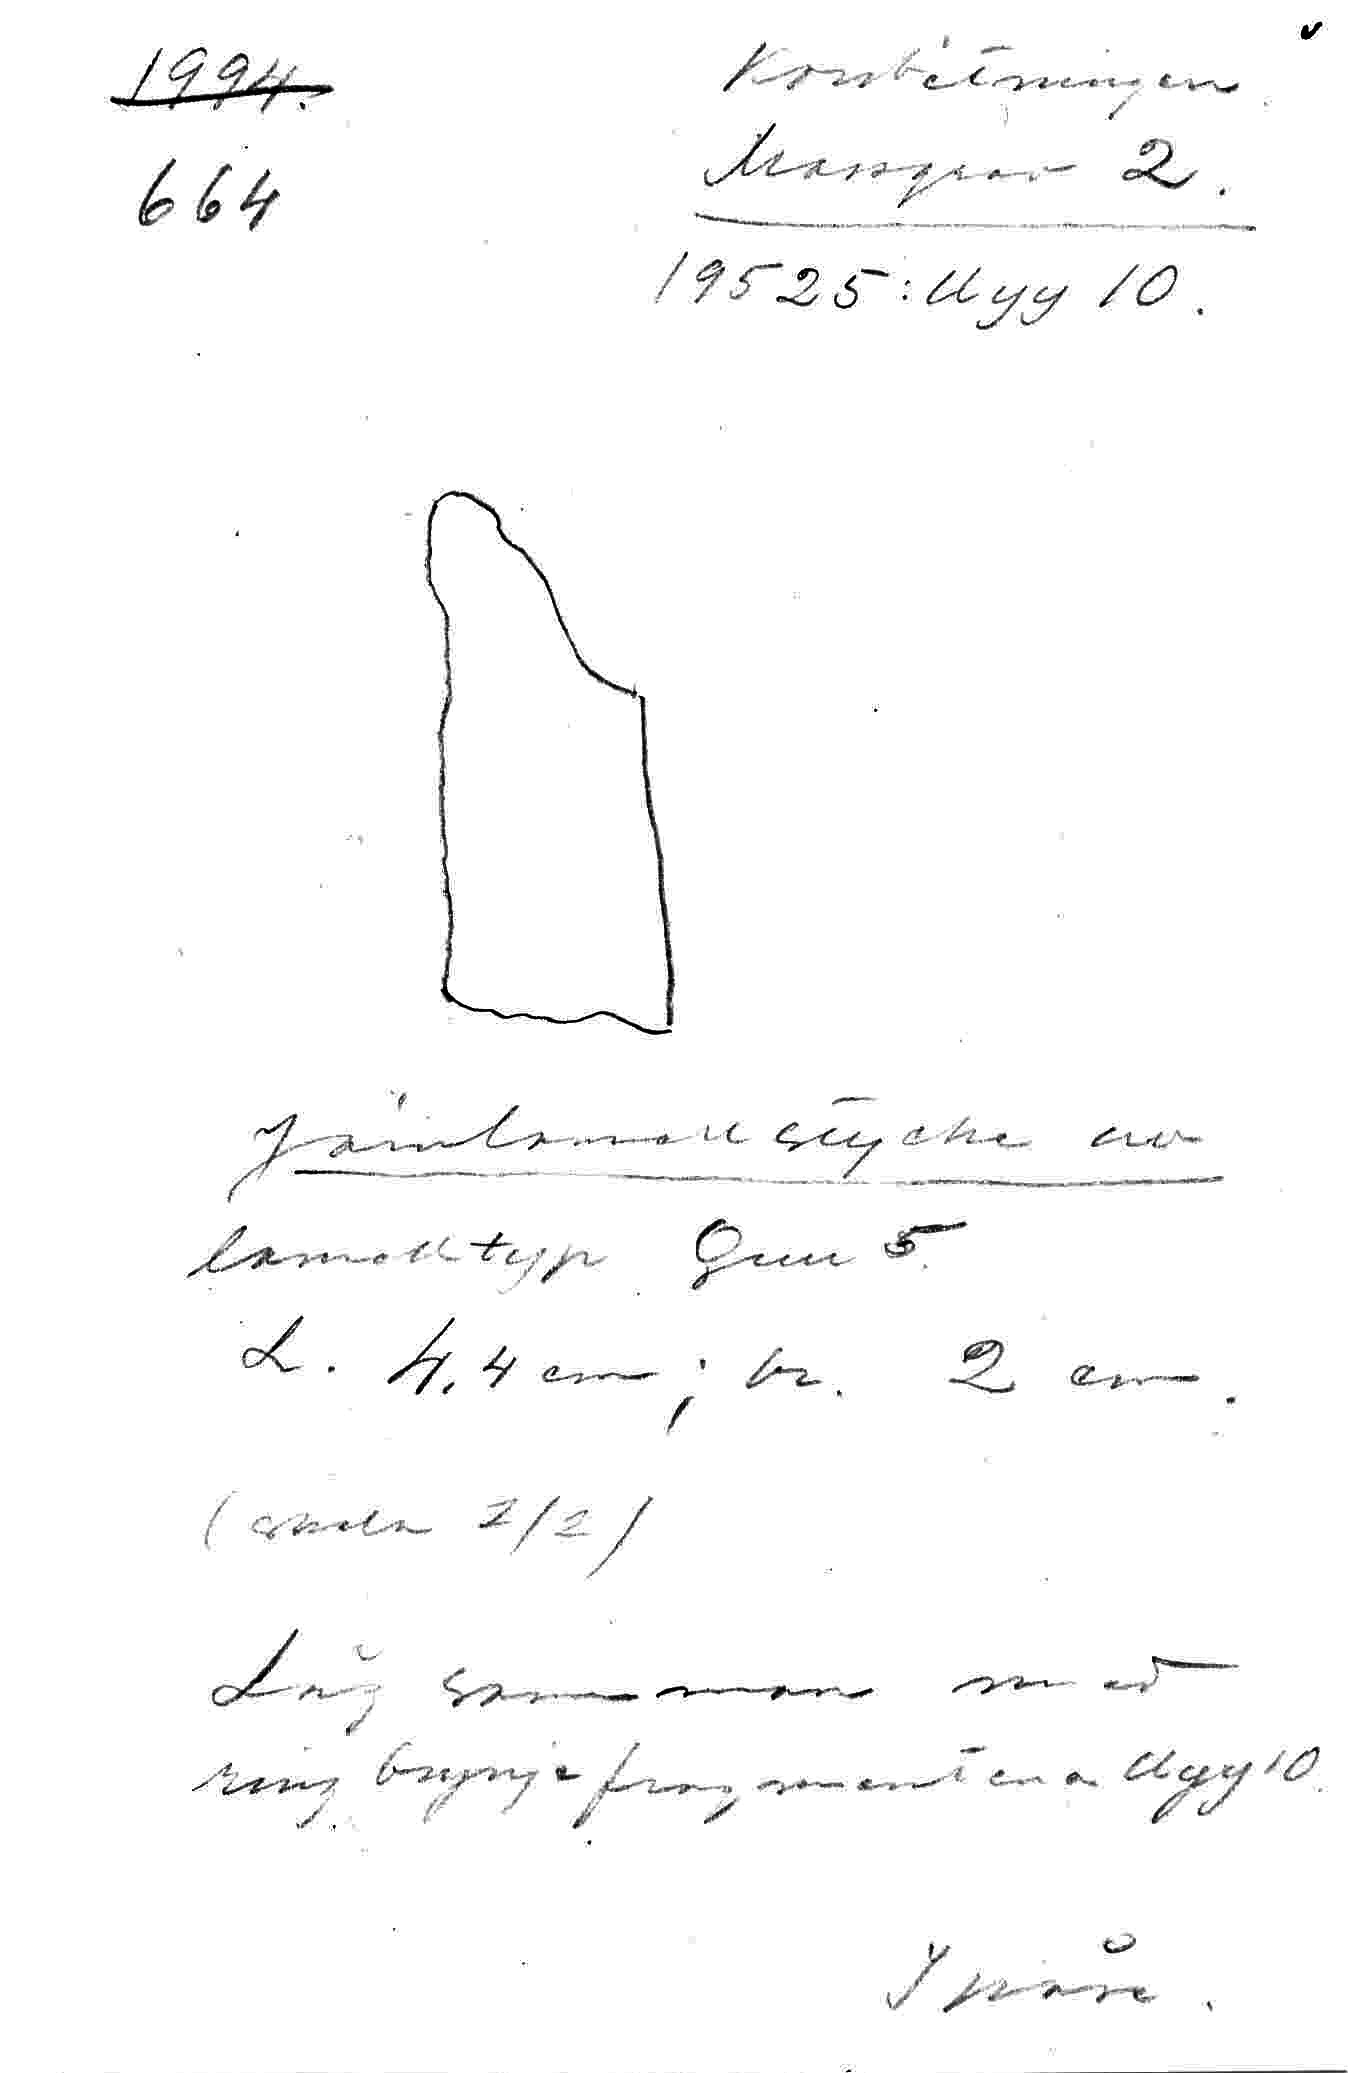 1994.
664
Korsbetningen.
Massgrav 2.
19525: Uyy 10.
Järnlamellstycke av
lamelltyp Quu 5.
L. 4,4 cm; br. 2 cm.
(skala 2/2)
Låg samman med
ringbrynjefragmentena Uyy 10.
I påse.